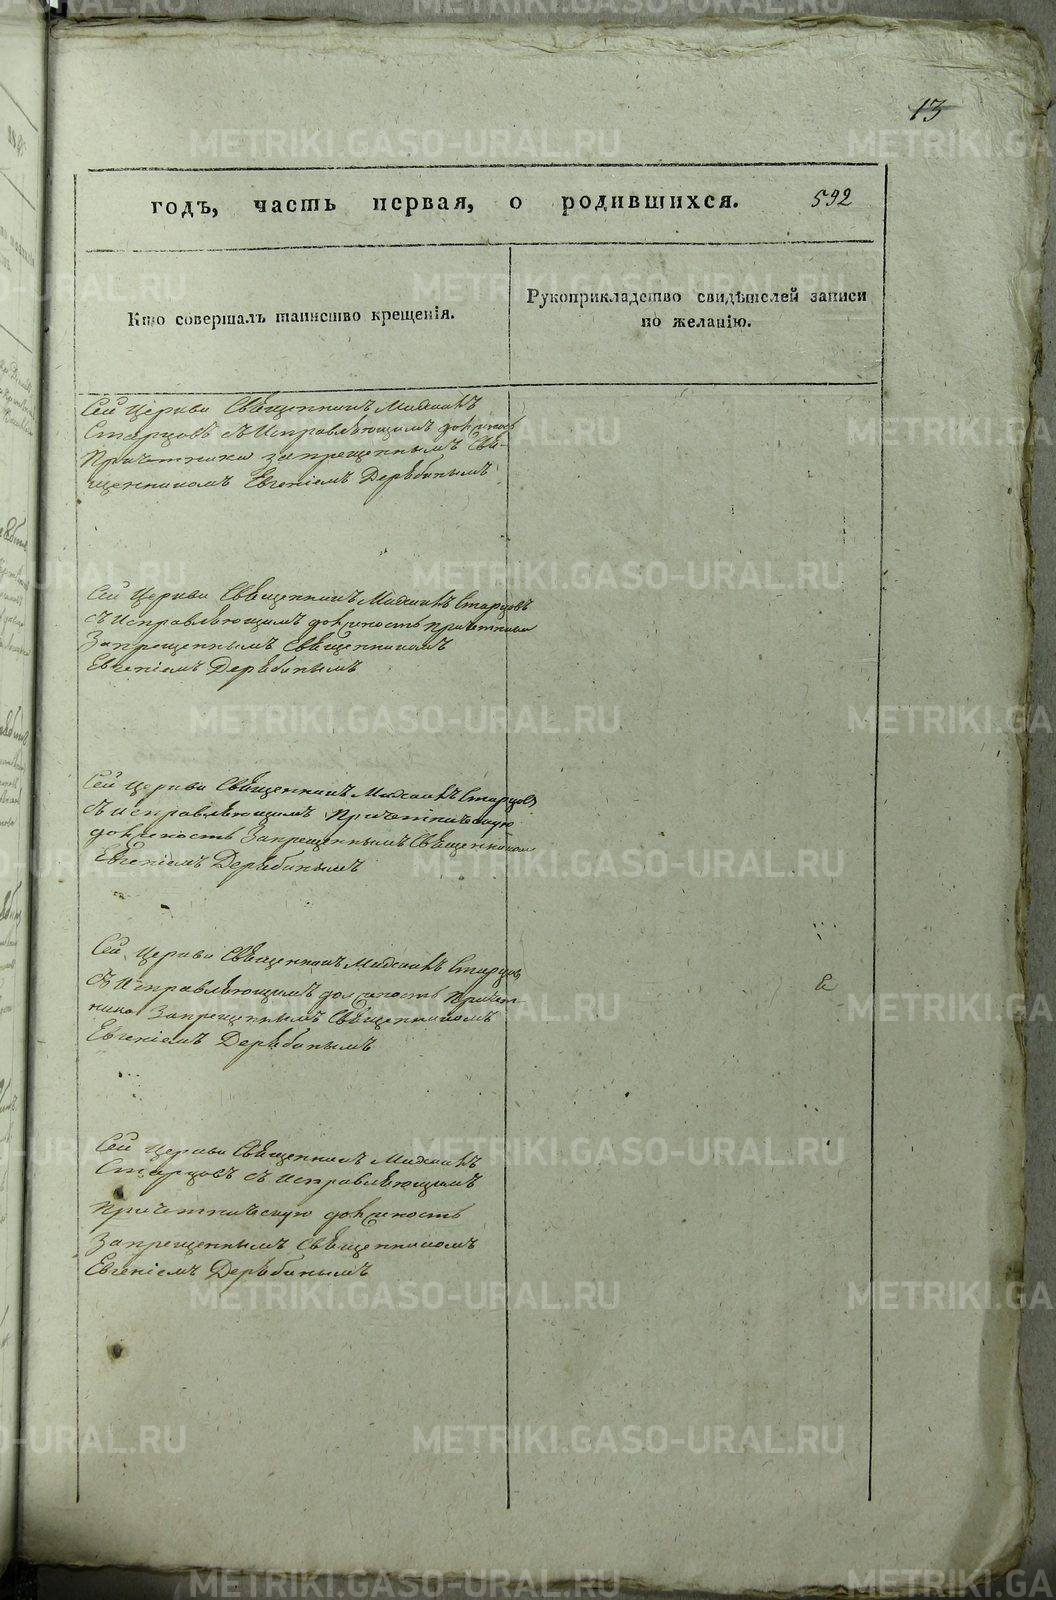 13
годъ, часть первая, о родившихся. 592
Кто совершалъ таинство крещенія.
Рукоприкладство свидѣтелей записи
по желанію.
Сей Церкви Священникъ Михаилъ
Старцовъ съ Исправляющимъ должность
Причетника запрещеннымъ Свя-
щенникомъ Евгеніемъ Дерябинымъ
Сей Церкви Священникъ Михаилъ Старцовъ
съ Исправляющимъ должность причетника
Запрещеннымъ Священникомъ
Евгеніемъ Дерябинымъ
Сей Церкви Священникъ Михаилъ Старцовъ
съ исправляющимъ Причетническую
должность Запрещеннымъ Священникомъ
Евгеніемъ Дерябинымъ
Сей Церкви Священникъ Михаилъ Старцовъ
съ Исправляющимъ должность Причет-
ника Запрещеннымъ Священникомъ
Евгеніемъ Дерябинымъ
Сей Церкви Священникъ Михаилъ
Старцовъ съ Исправляющимъ
Причетническую должность
Запрещеннымъ Священникомъ
Евгеніемъ Дерябинымъ
METRIKI.GASO-URAL.RU